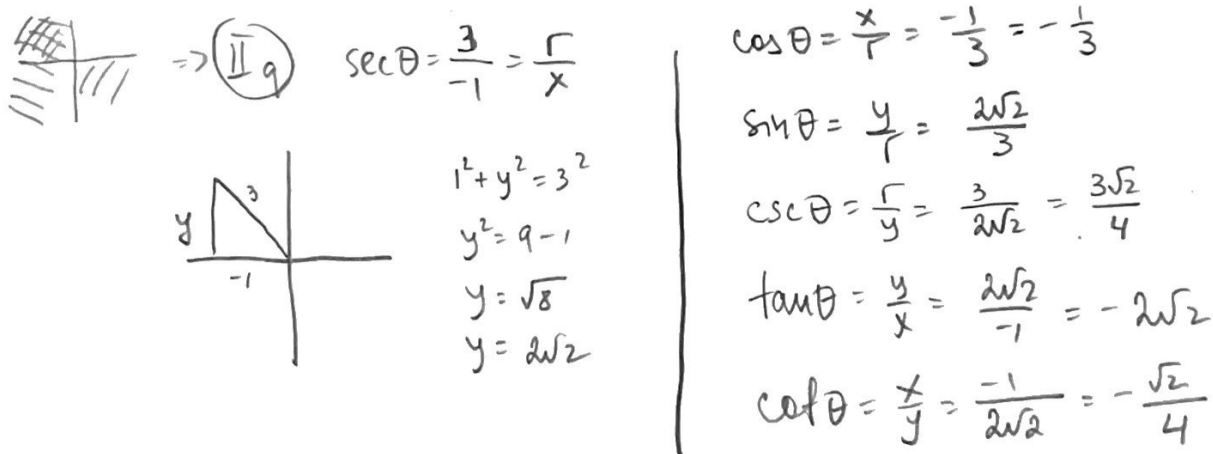 => IIq secθ = 3/-1 = r/x
y 3
-1
1² + y² = 3²
y² = 9 - 1
y = √8
y = 2√2
cosθ = x/r = -1/3 = -1/3
sinθ = y/r = 2√2/3
cscθ = r/y = 3/2√2 = 3√2/4
tanθ = y/x = 2√2/-1 = -2√2
cotθ = x/y = -1/2√2 = -√2/4